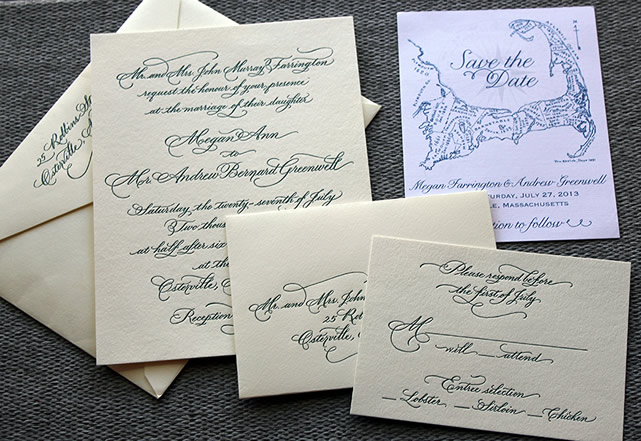 25 Robbins
Osterville,
Mr. and Mrs. John Murray Farrington
request the honour of your presence
at the marriage of their daughter
Megan Ann
to
Mr. Andrew Bernard Greenwell
Saturday, the twenty-seventh of July
Two thous
at half after six
at th
Osterville,
Reception
Save the
Date
Megan Farrington & Andrew Greenwell
turday, July 27, 2013
le, Massachusetts
tion to follow
Mr. and Mrs. John
25 Ro
Osterville,
Please respond before
the first of July
M
will ___ attend
Entree selection
__ Lobster __ Sirloin __ Chicken